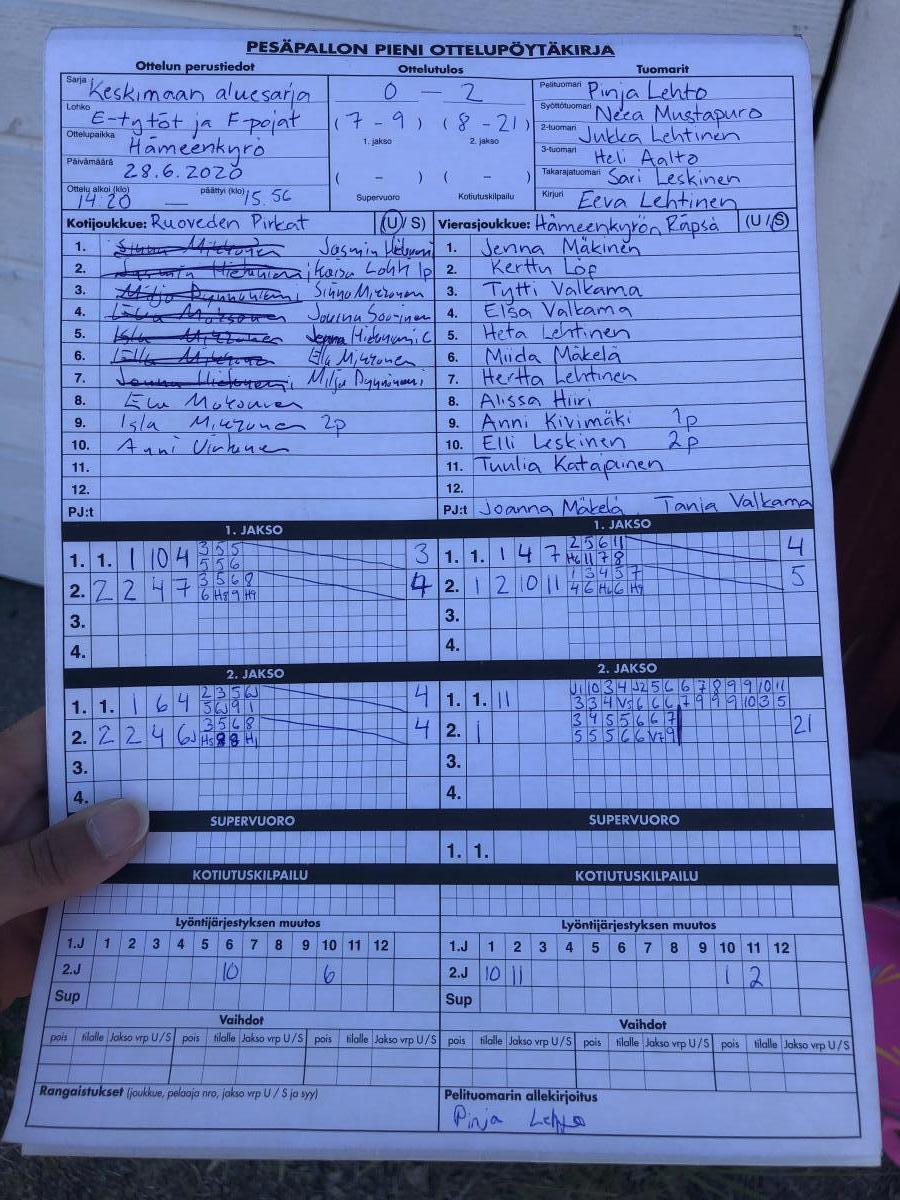 PESÄPALLON PIENI OTTELUPÖYTÄKIRJA
Ottelun perustiedot
Sarja Keskimaan aluesarja
Lohko E-tytöt ja F-pojat
Ottelupaikka Hämeenkyrö
Päivämäärä 28.6.2020
Ottelu alkoi (klo) 14.20 — päättyi (klo) 15.56
Ottelutulos
0 – 2
(7 – 9) (8 – 21)
1. jakso 2. jakso
( – ) ( – )
Supervuoro Kotiutuskilpailu
Tuomarit
Pelituomari Pinja Lehto
Syöttötuomari Neea Mustapuro
2-tuomari Jukka Lehtinen
3-tuomari Heli Aalto
Takarajatuomari Sari Leskinen
Kirjuri Eeva Lehtinen
Kotijoukkue: Ruoveden Pirkat (U/S)
1. Jasmin
2. Kaisa 1p
3.
4.
5.
6. Ella
7. Milja
8.
9. Isla 2p
10. Anni
11.
12.
PJ:t
Vierasjoukkue: Hämeenkyrön Räpsä (U/S)
1. Jenna Mäkinen
2. Kerttu
3. Tytti Valkama
4. Elsa Valkama
5. Heta Lehtinen
6. Miida Mäkelä
7. Hertta Lehtinen
8. Alissa Hiiri
9. Anni Kivimäki 1p
10. Elli Leskinen 2p
11. Tuulia Katajainen
12.
PJ:t Joanna Mäkelä, Tanja Valkama
1. JAKSO
1. 1. 1 10 4 3 5 5 3
5 5 6
2. 2 2 4 7 3 5 6 8 4
6 H8 9 H9
3.
4.
1. JAKSO
1. 1. 1 4 7 2 5 6 11 4
H6 11 7 8
2. 1 2 10 11 1 3 4 5 7 5
4 6 H6 6 H9
3.
4.
2. JAKSO
1. 1. 1 6 4 2 3 5 6J 4
5 6J 9 1
2. 2 2 4 6J 3 5 6 8 4
3.
4.
2. JAKSO
1. 1. 11 J1 10 3 4 J2 5 6 6 7 8 9 9 10 11
3 3 4 V5 6 6 6 7 9 9 9 10 3 5
2. 1 3 4 5 5 6 6 7 21
5 5 5 6 6 V7 9
3.
4.
SUPERVUORO
SUPERVUORO
1. 1.
KOTIUTUSKILPAILU
KOTIUTUSKILPAILU
Lyöntijärjestyksen muutos
1.J 1 2 3 4 5 6 7 8 9 10 11 12
2.J 10 6
Sup
Lyöntijärjestyksen muutos
1.J 1 2 3 4 5 6 7 8 9 10 11 12
2.J 10 11 1 2
Sup
Vaihdot
pois tilalle Jakso vrp U/S pois tilalle Jakso vrp U/S pois tilalle Jakso vrp U/S
Vaihdot
pois tilalle Jakso vrp U/S pois tilalle Jakso vrp U/S pois tilalle Jakso vrp U/S
Rangaistukset (joukkue, pelaaja nro, jakso vrp U / S ja syy)
Pelituomarin allekirjoitus
Pinja Lehto